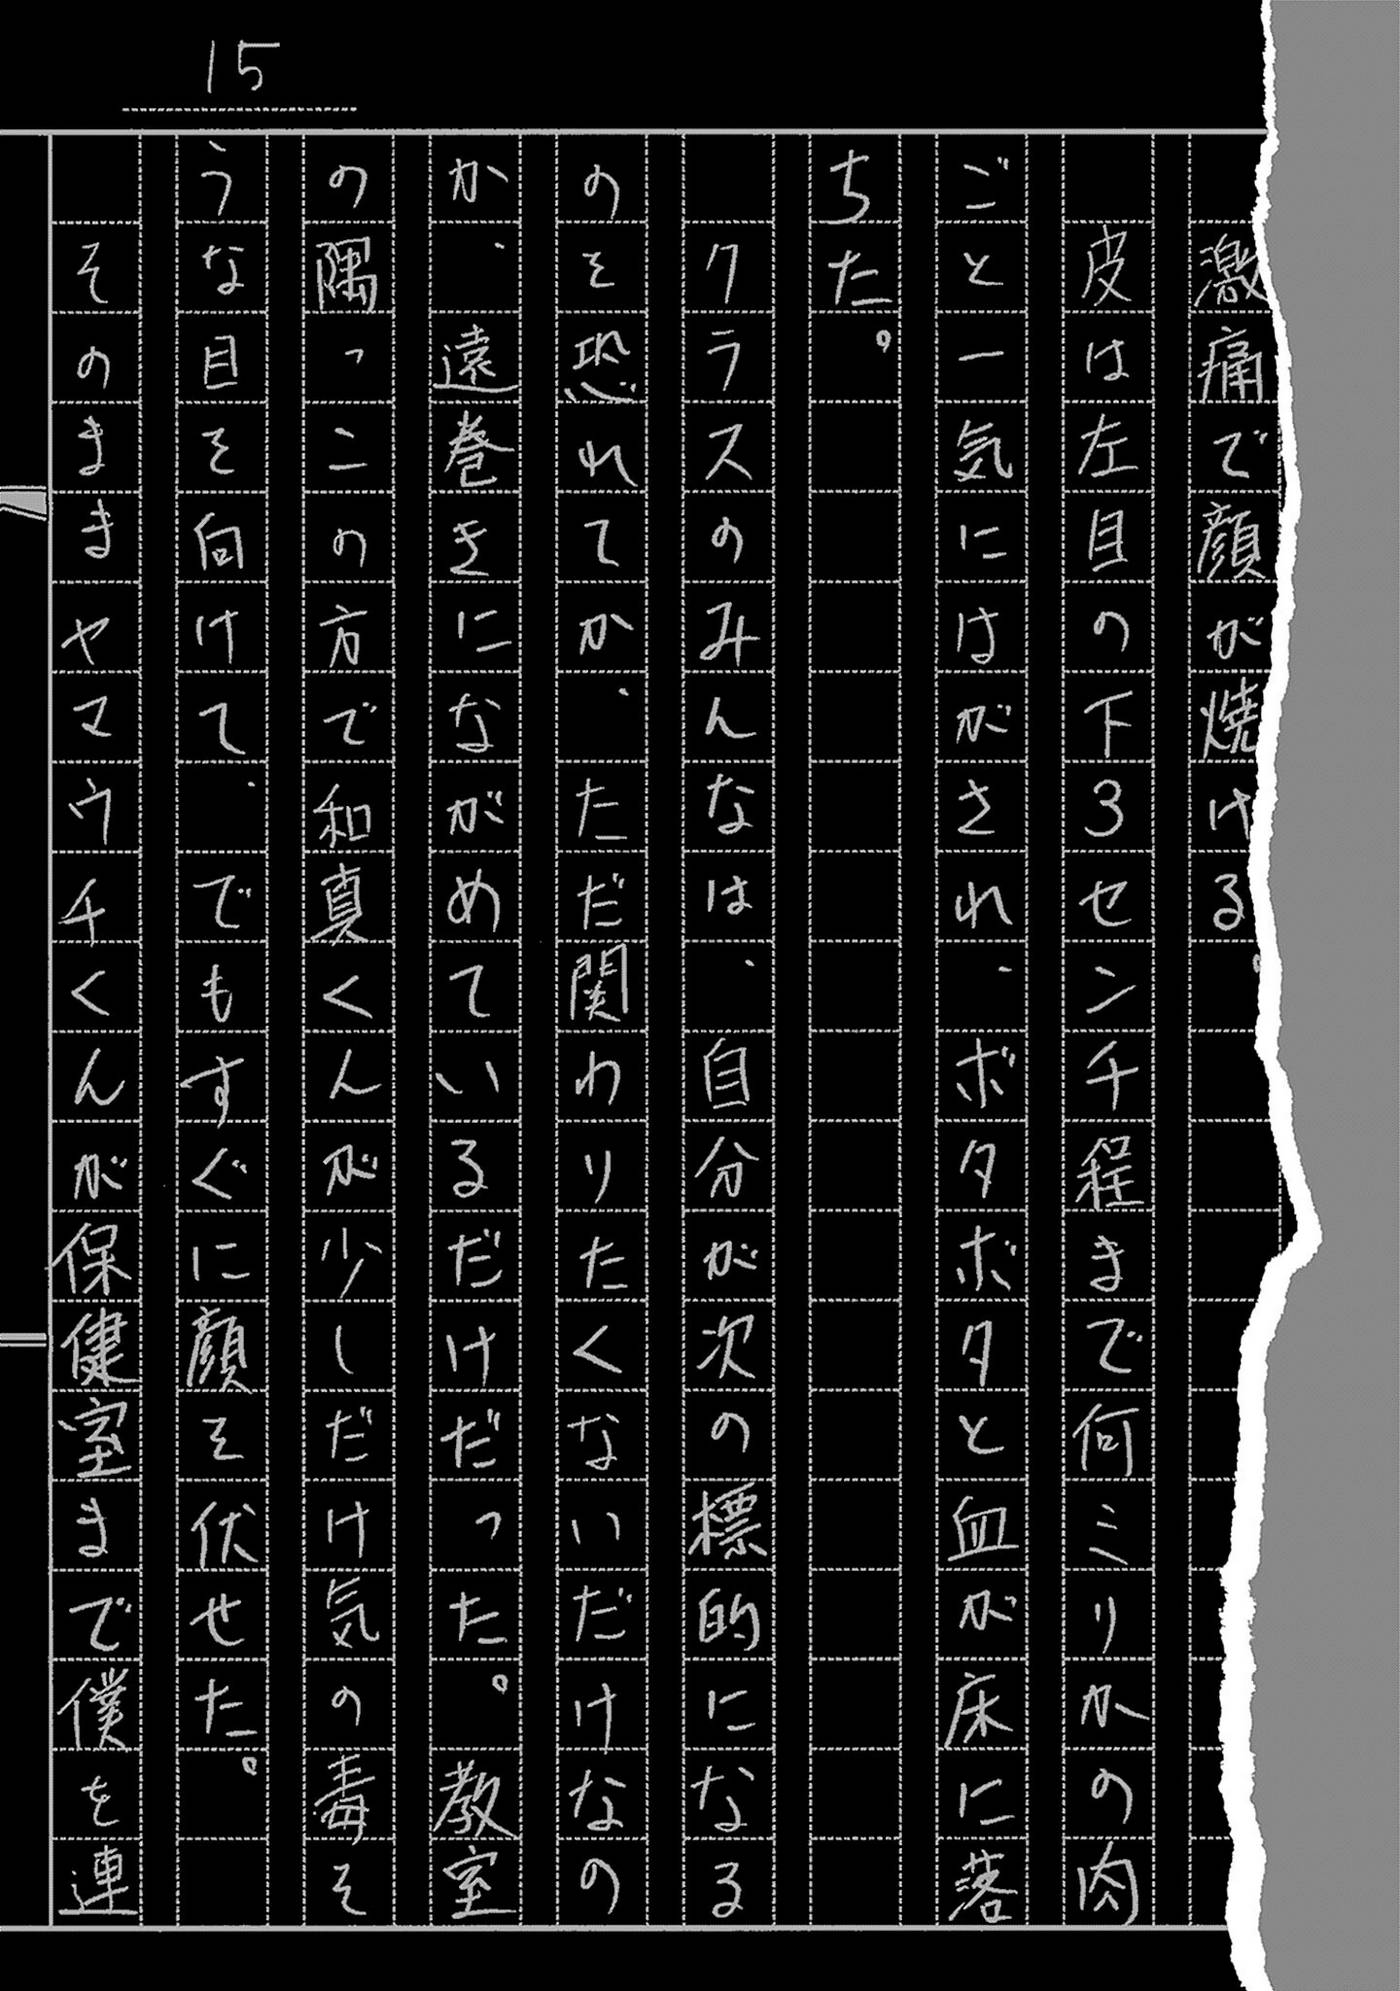 15
激痛で顔が焼ける。
皮は左目の下3センチ程まで何ミリかの肉
ごと一気にはがされ、ボタボタと血が床に落
ちた。
クラスのみんなは、自分が次の標的になる
のを恐れてか、ただ関わりたくないだけなの
か、遠巻きにながめているだけだった。教室
の隅っこの方で和真くんが少しだけ気の毒そ
うな目を向けて、でもすぐに顔を伏せた。
そのままヤマウチくんが保健室まで僕を連